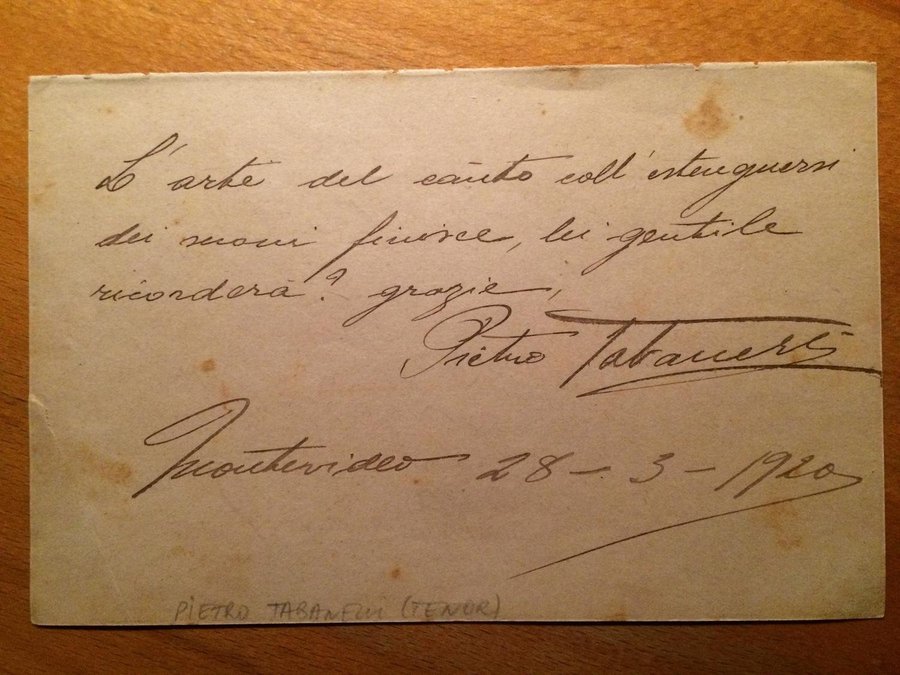 L'arte del canto coll'estenguersi
dei suoni finisce, lei gentile
ricorderà? grazie,
Pietro Tabanelli
Montevideo 28-3-1920
PIETRO TABANELLI (TENOR)